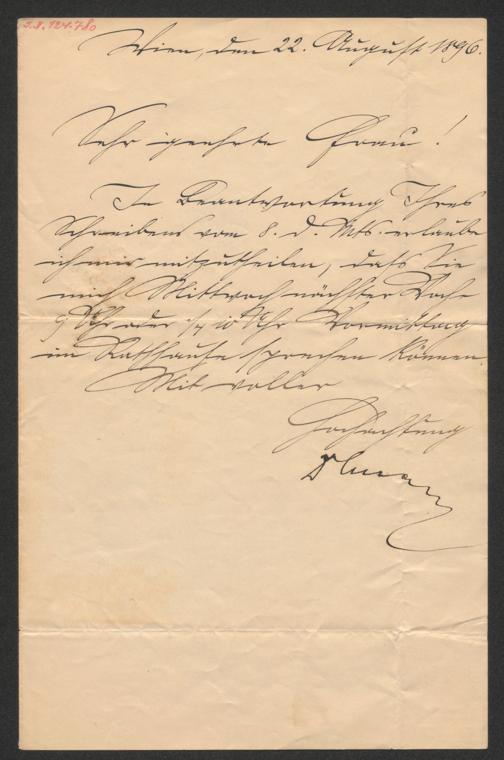 J.N. 124.780
Wien, den 22. August 1896.
Sehr geehrte Frau!
In Beantwortung Ihres
Schreibens vom 8. d. Mts. erlaube
ich mir mitzutheilen, daß Sie
mich Mittwoch nächster Woche
9 Uhr oder ½ 10 Uhr Vormittag
im Rathhause sprechen können.
Mit voller
Hochachtung